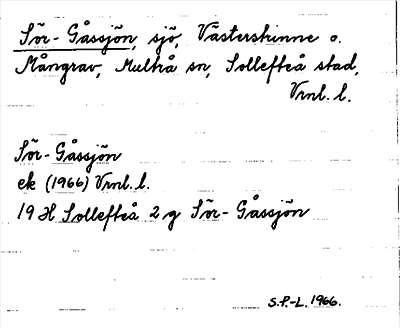 Sör-Gåssjön, sjö, Västerskinne o.
Mångrav, Multrå sn, Sollefteå stad,
Vrnl. l.
Sör-Gåssjön
ek (1966) Vrnl. l.
19 H Sollefteå 2 g Sör-Gåssjön
S.P.-L. 1966.